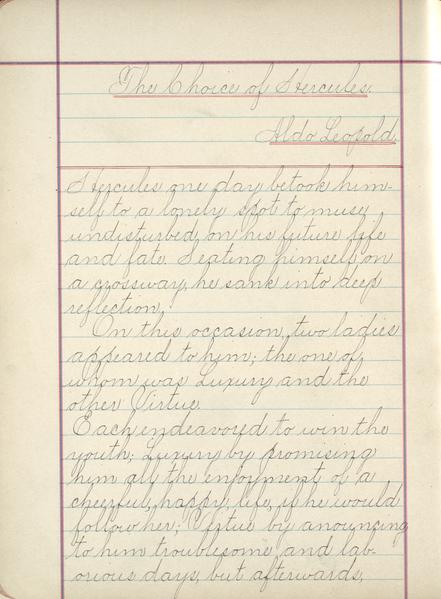 The Choice of Hercules.
Aldo Leopold.
Hercules one day betook him-
self to a lonely spot to muse,
undisturbed, on his future life
and fate. Seating himself on
a crossway, he sank into deep
reflection.
On this occasion, two ladies
appeared to him; the one of
whom was Luxury and the
other Virtue.
Each endeavored to win the
youth; Luxury by promising
him all the enjoyment of a
cheerful, happy life, if he would
follow her; Virtue by anouncing
to him troublesome and lab-
orious days, but afterwards,